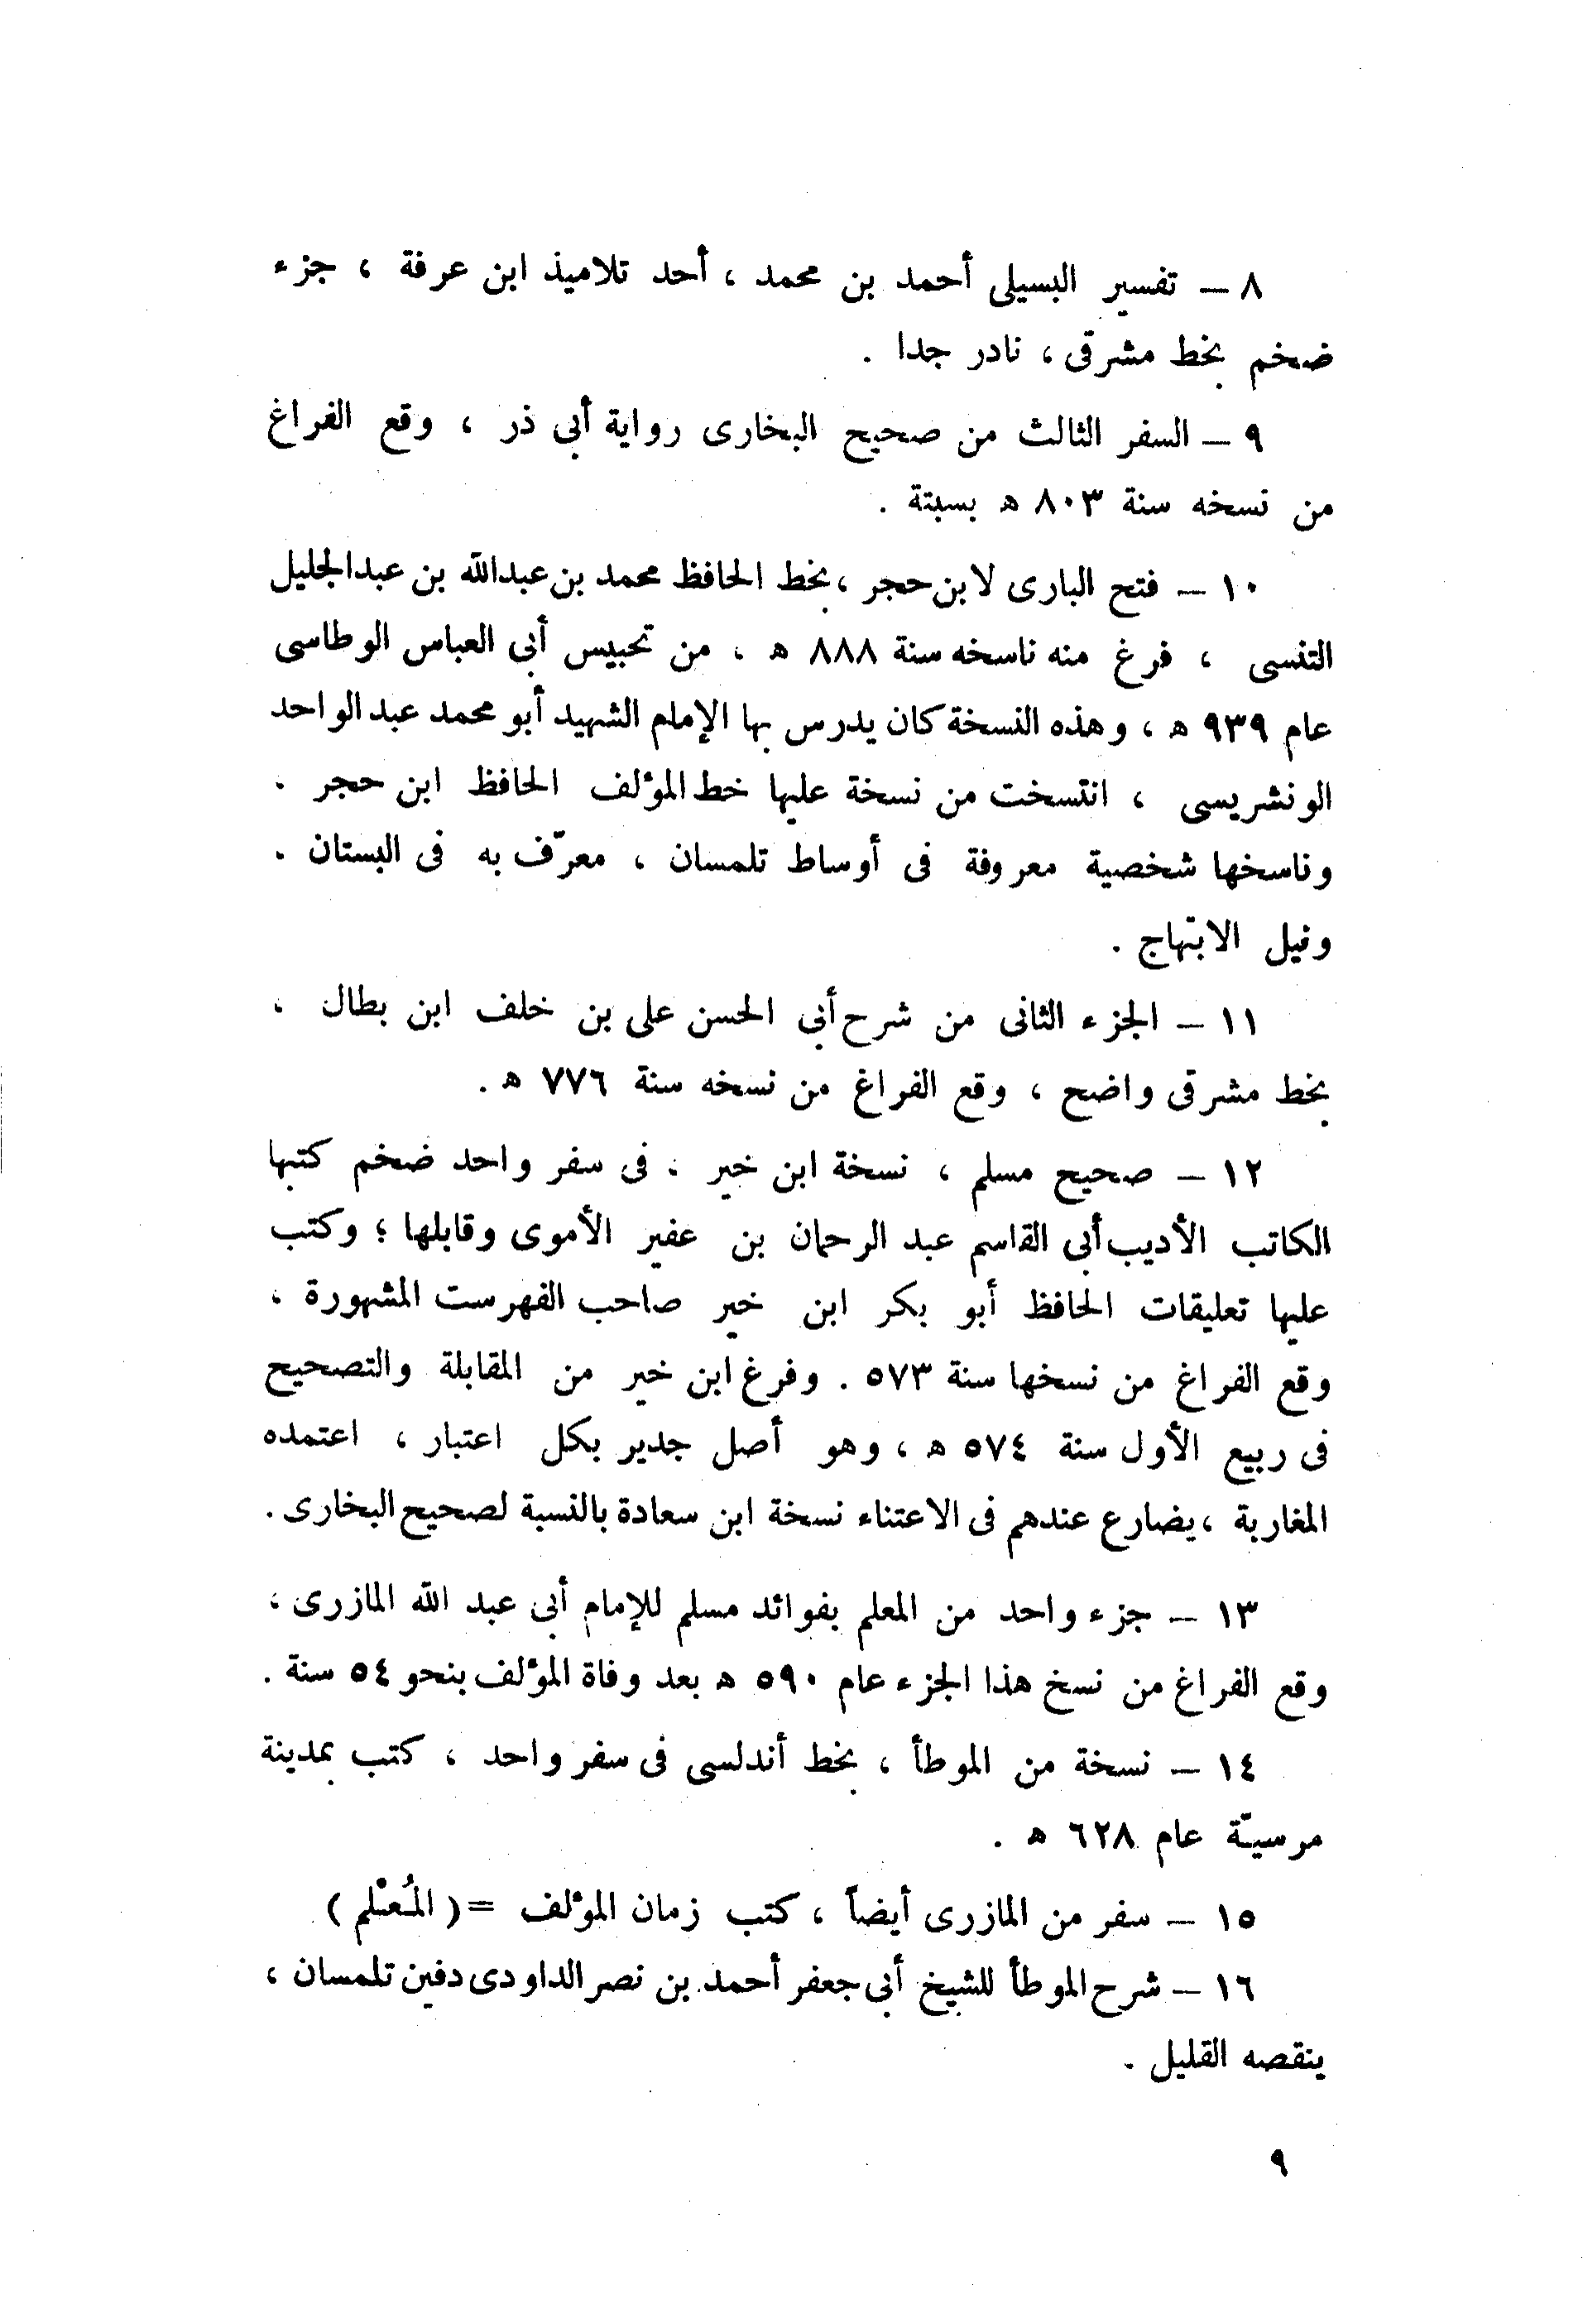 ٨ — تفسير البسيلى أحمد بن محمد ، أحد تلاميذ ابن عرفة ، جزء
ضخم بخط مشرقى ، نادر جدا .
٩ — السفر الثالث من صحيح البخارى رواية أبى ذر ، وقع الفراغ
من نسخه سنة ٨٠٣ هـ بسبتة .
١٠ — فتح البارى لابن حجر ، بخط الحافظ محمد بن عبدالله بن عبدالجليل
التنسى ، فرغ منه ناسخه سنة ٨٨٨ هـ ، من تحبيس أبى العباس الوطاسى
عام ٩٣٩ هـ ، وهذه النسخة كان يدرس بها الإمام الشهيد أبو محمد عبد الواحد
الونشريسى ، انتسخت من نسخة عليها خط المؤلف الحافظ ابن حجر .
وناسخها شخصية معروفة فى أوساط تلمسان ، معرّف به فى البستان .
ونيل الابتهاج .
١١ — الجزء الثانى من شرح أبى الحسن على بن خلف ابن بطال ،
بخط مشرقى واضح ، وقع الفراغ من نسخه سنة ٧٧٦ هـ .
١٢ — صحيح مسلم ، نسخة ابن خير ، فى سفر واحد ضخم كتبها
الكاتب الأديب أبى القاسم عبد الرحمان بن عفير الأموى وقابلها ؛ وكتب
عليها تعليقات الحافظ أبو بكر ابن خير صاحب الفهرست المشهورة ،
وقع الفراغ من نسخها سنة ٥٧٣ . وفرغ ابن خير من المقابلة والتصحيح
فى ربيع الأول سنة ٥٧٤ هـ ، وهو أصل جدير بكل اعتبار ، اعتمده
المغاربة ، يضارع عندهم فى الاعتناء نسخة ابن سعادة بالنسبة لصحيح البخارى .
١٣ — جزء واحد من المعلم بفوائد مسلم للإمام أبى عبد الله المازرى ،
وقع الفراغ من نسخ هذا الجزء عام ٥٩٠ هـ بعد وفاة المؤلف بنحو ٥٤ سنة .
١٤ — نسخة من الموطأ ، بخط أندلسى فى سفر واحد ، كتب بمدينة
مرسيّة عام ٦٢٨ هـ .
١٥ — سفر من المازرى أيضاً ، كتب زمان المؤلف = ( المُعْلم )
١٦ — شرح الموطأ للشيخ أبى جعفر أحمد بن نصر الداودى دفين تلمسان ،
ينقصه القليل .
٩